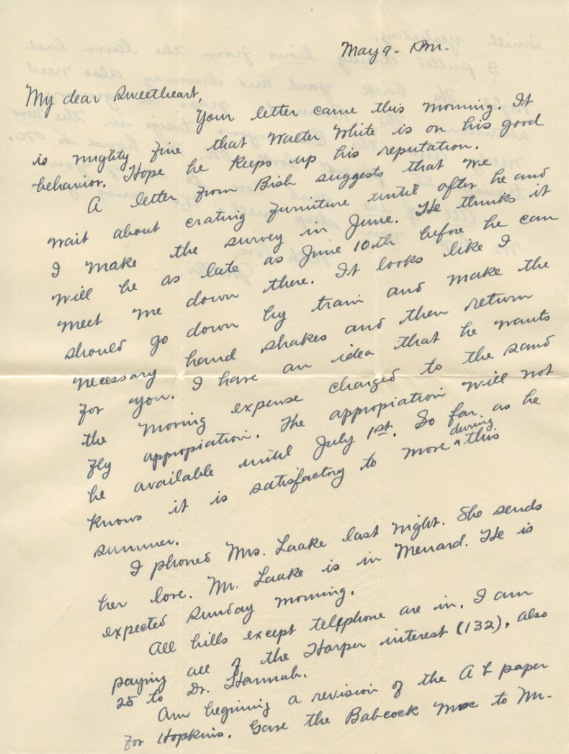 May 9 - PM.
My dear Sweetheart,
Your letter came this morning. It
is mighty fine that Walter White is on his good
behavior. Hope he keeps up his reputation.
A letter from Bish suggests that we
wait about crating furniture until after he and
I make the survey in June. He thinks it
will be as late as June 10th before he can
meet me down there. It looks like I
should go down by train and make the
necessary hand shakes and then return
for you. I have an idea that he wants
the moving expense charged to the sand
fly appropiation. The appropiation will not
be available until July 1st. So far as he
knows it is satisfactory to move during this
summer.
I phoned Mrs. Laake last night. She sends
her love. Mr. Laake is in Menard. He is
expected Sunday morning.
All bills except telephone are in. I am
paying all of the Harper interest (132), also
25 to Dr. Hannah.
Am begining a revision of the A L paper
for Hopkins. Gave the Babcock to Mr-